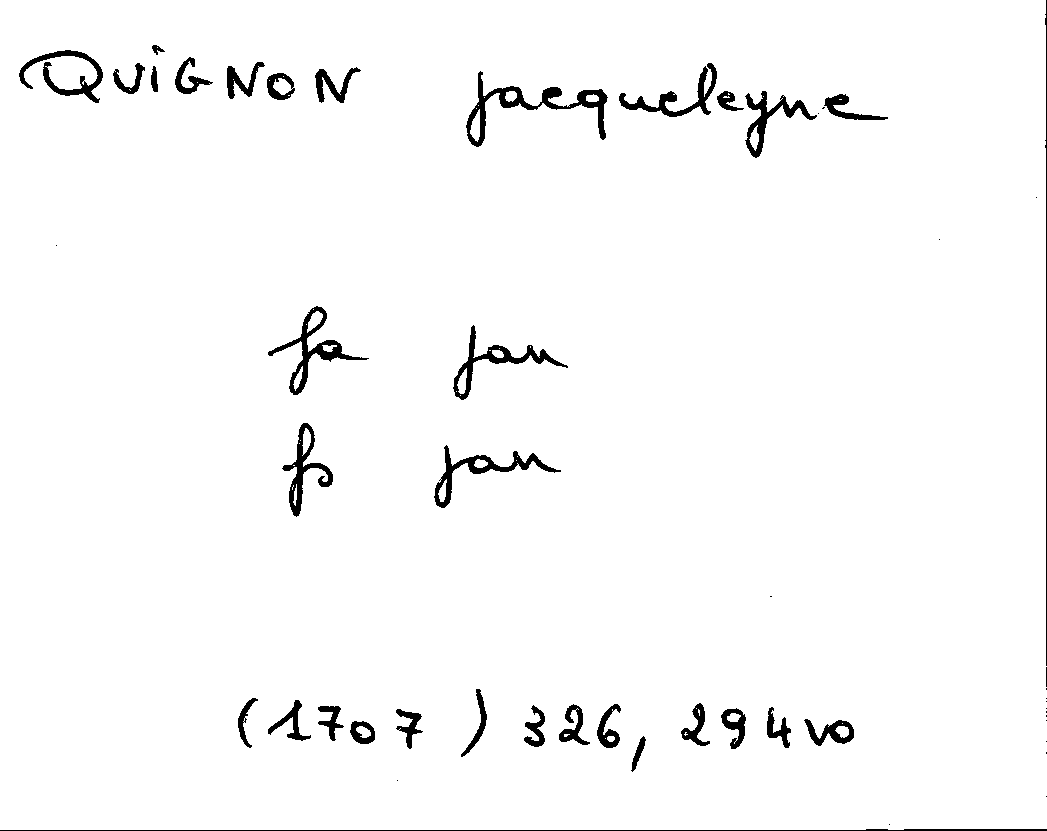 QUIGNON Jacqueleyne
fa Jan
fs Jan
(1707) 326, 294vo